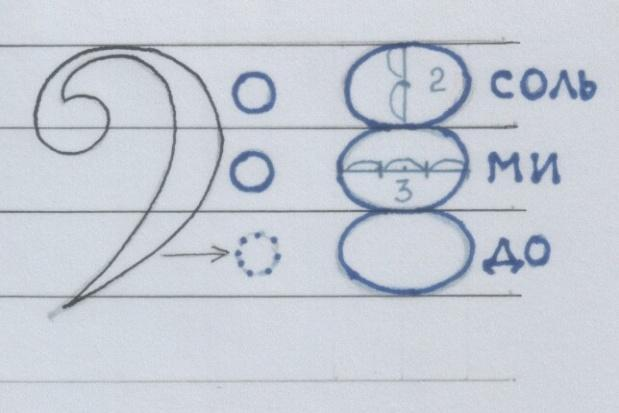 2 СОЛЬ
3 МИ
ДО